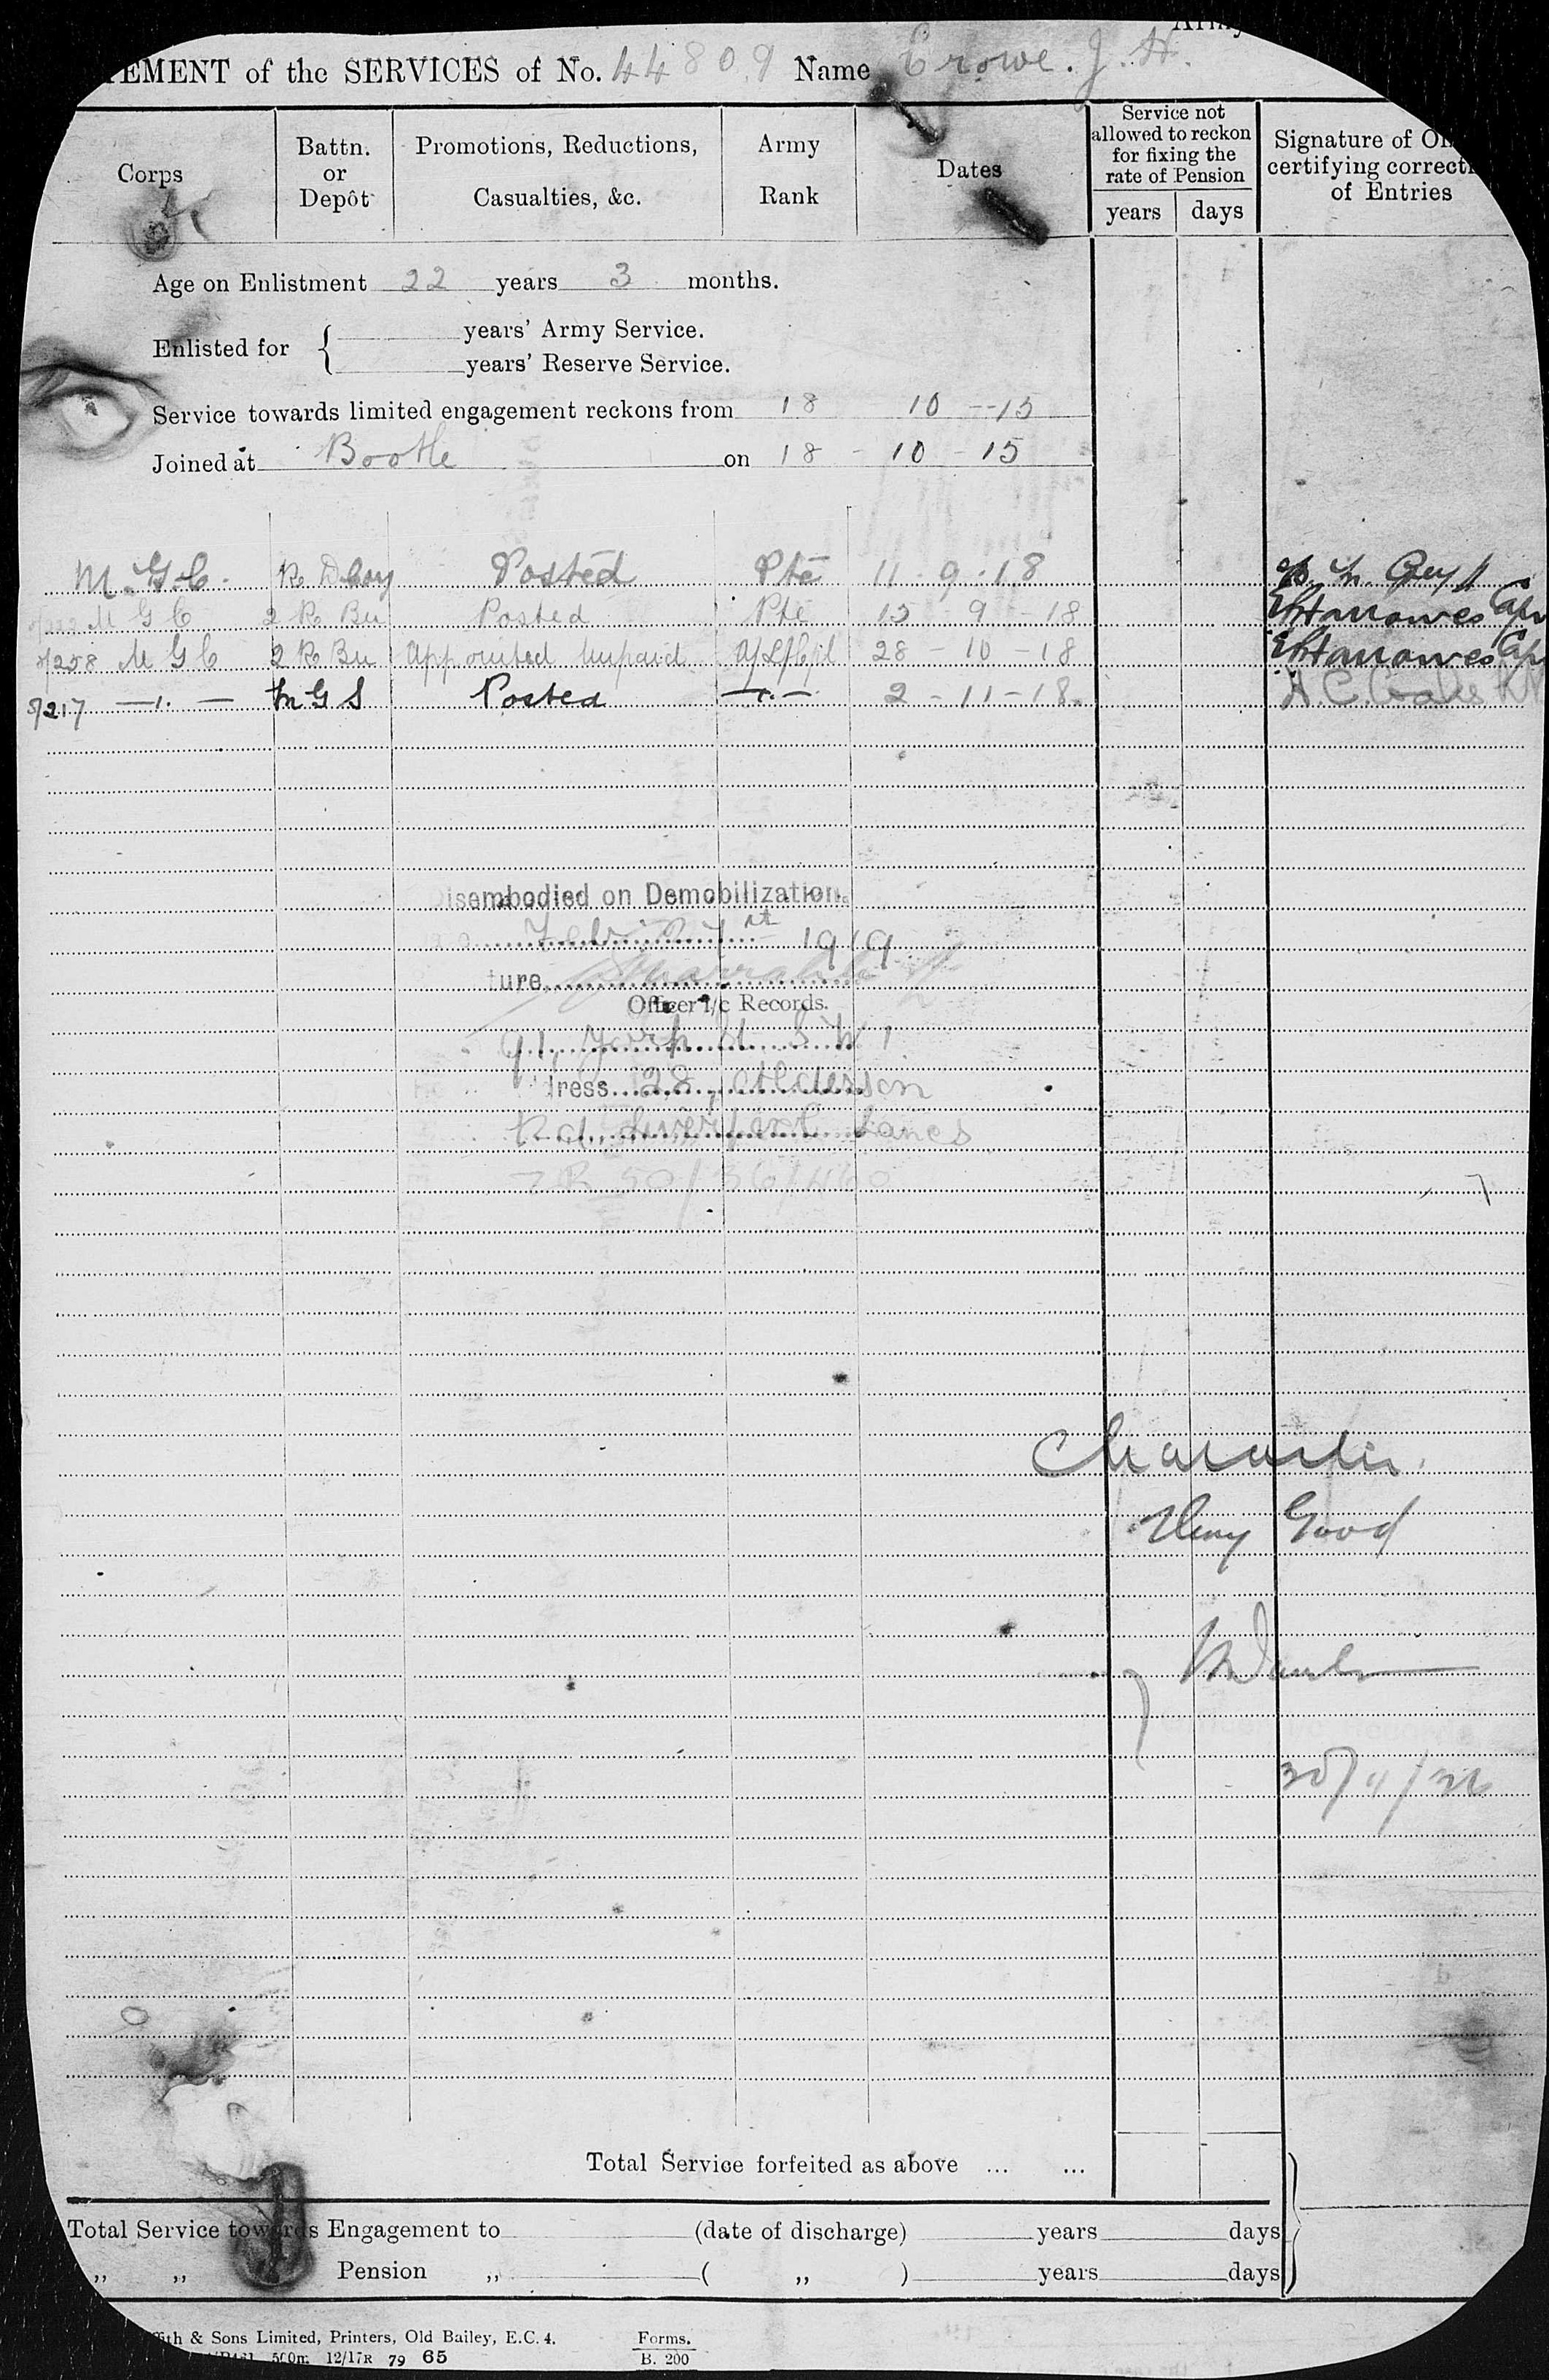 Army
TEMENT of the SERVICES of No. 44809 Name Crowe. J. H.
Corps
Battn. or Depôt
Promotions, Reductions, Casualties, &c.
Army Rank
Dates
Service not allowed to reckon for fixing the rate of Pension
years days
Signature of certifying of Entries
Age on Enlistment 22 years 3 months.
Enlisted for { years' Army Service.
years' Reserve Service.
Service towards limited engagement reckons from 18 10 - 15
Joined at Bootle on 18 - 10 - 15
M.G.C. R. Posted Pte 11 - 9 - 18
M G C 2 R. Bn Posted Pte 13 - 9 - 18
258 M G C 2 R. Bn Appointed Unpaid A/L/Cpl 28 - 10 - 18
217 —"— M G S Posted —"— 2 - 11 - 18.
Disembodied on Demobilization.
Feb 1919
ture
Officer i/c Records.
91, York St. S W 1
dress 28, Alderson
Rd Liverpool Lancs
ZR 50/361460
Character
Very Good
Total Service forfeited as above ... ...
Total Service towards Engagement to (date of discharge) years days
„ „ Pension „ ( „ ) years days
ffith & Sons Limited, Printers, Old Bailey, E.C. 4. Forms.
500m 12/17R 79 65 B. 200